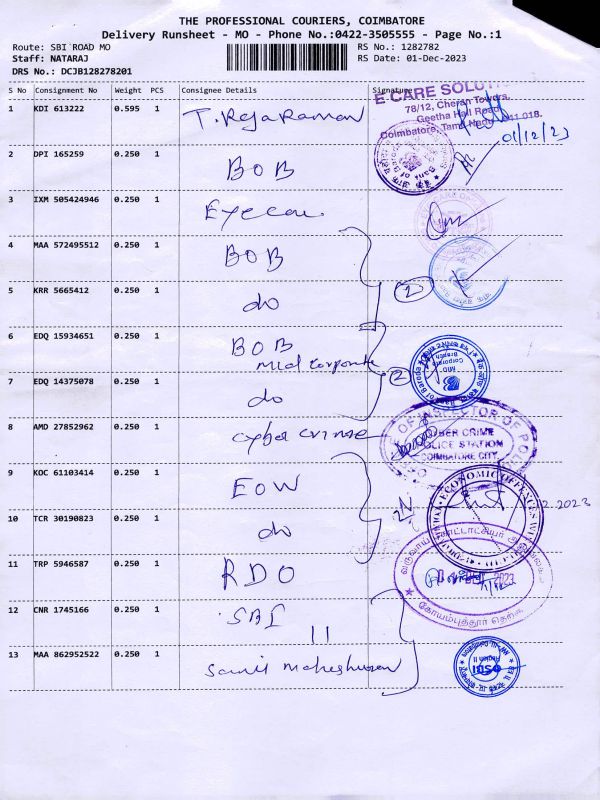 THE PROFESSIONAL COURIERS, COIMBATORE
Delivery Runsheet - MO - Phone No.:0422-3505555 - Page No.:1
Route: SBI ROAD MO
RS No.: 1282782
Staff: NATARAJ
RS Date: 01-Dec-2023
DRS No.: DCJB128278201
S No Consignment No Weight PCS Consignee Details Signature
E CARE SOLUT
78/12, Cheran Towers,
Geetha Hall Road
Coimbatore, Tamil Nadu 641 018.
1 KDI 613222 0.595 1 T. Rajaraman
01/12/23
2 DPI 165259 0.250 1 BOB
3 IXM 505424946 0.250 1 Eyecare
4 MAA 572495512 0.250 1 BOB
5 KRR 5665412 0.250 1 do
2
6 EDQ 15934651 0.250 1 BOB
Mid Corporate
7 EDQ 14375078 0.250 1 do
2
MID
Corporate
Branch
8 AMD 27852962 0.250 1 Cyber crime
OF INSPECTOR OF POL
CYBER CRIME
POLICE STATION
COIMBATORE CITY
9 KOC 61103414 0.250 1 EOW
ECONOMIC OFFENCES W
.12.2023
10 TCR 30190823 0.250 1 do
11 TRP 5946587 0.250 1 RDO
வருவாய் கோட்டாட்சியர்
2023
கோயம்புத்தூர் தெற்கு
12 CNR 1745166 0.250 1 SBI
13 MAA 862952522 0.250 1